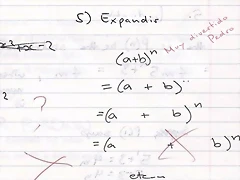 5) Expandir
x² + x - 2
(a+b)ⁿ
Muy divertido
Pedro
= (a + b)ⁿ
2
?
= (a + b)ⁿ
= (a + b)ⁿ
etc...